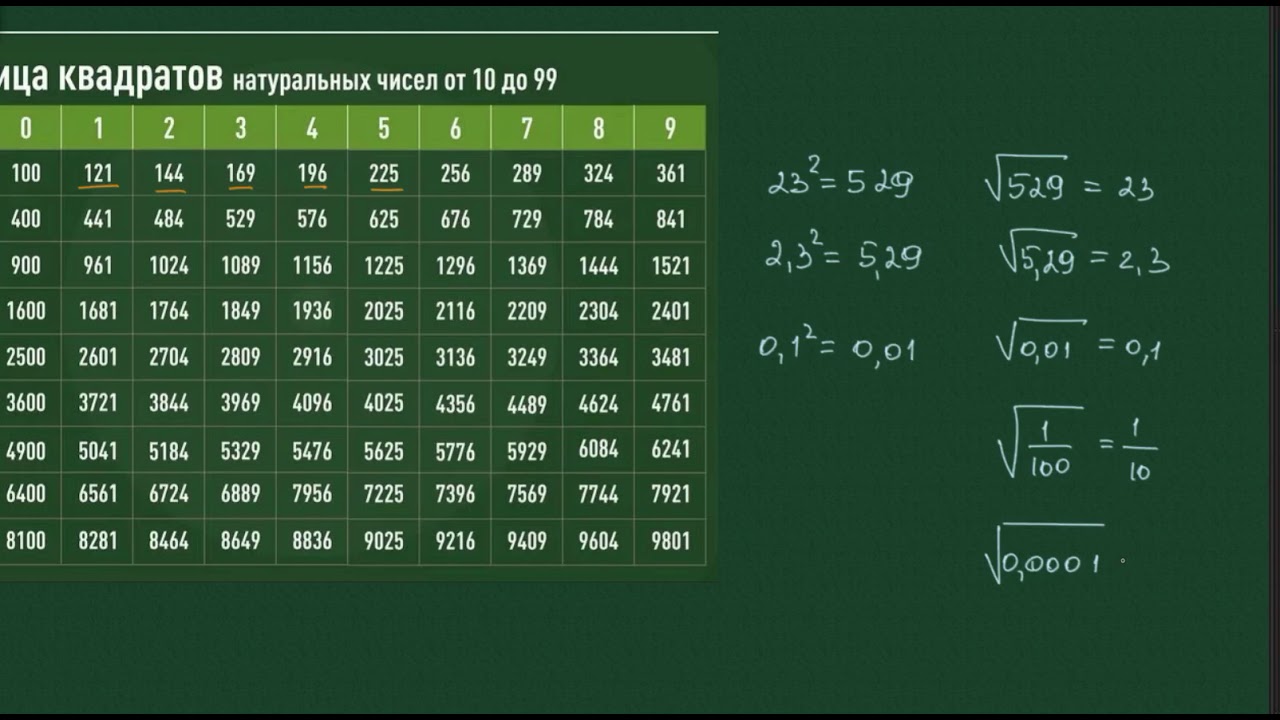 ица квадратов натуральных чисел от 10 до 99
0 1 2 3 4 5 6 7 8 9
100 121 144 169 196 225 256 289 324 361
400 441 484 529 576 625 676 729 784 841
900 961 1024 1089 1156 1225 1296 1369 1444 1521
1600 1681 1764 1849 1936 2025 2116 2209 2304 2401
2500 2601 2704 2809 2916 3025 3136 3249 3364 3481
3600 3721 3844 3969 4096 4025 4356 4489 4624 4761
4900 5041 5184 5329 5476 5625 5776 5929 6084 6241
6400 6561 6724 6889 7956 7225 7396 7569 7744 7921
8100 8281 8464 8649 8836 9025 9216 9409 9604 9801
23² = 529 √529 = 23
2,3² = 5,29 √5,29 = 2,3
0,1² = 0,01 √0,01 = 0,1
√1/100 = 1/10
√0,0001